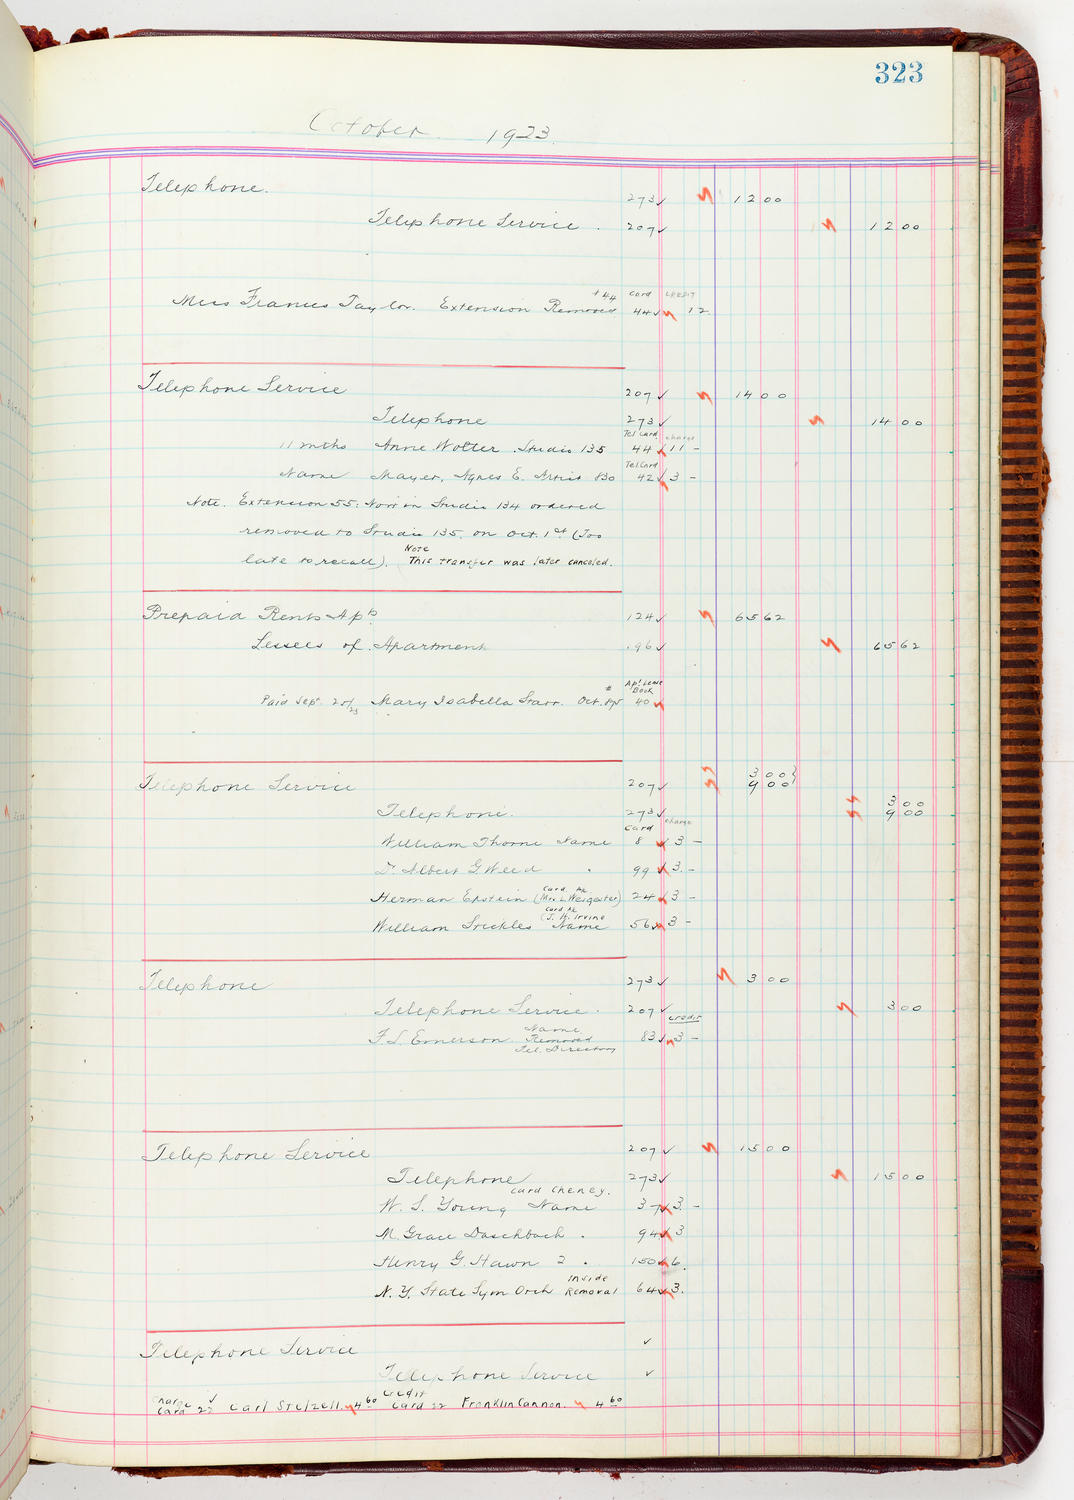 323
October 1923.
Telephone. 273 ✓ 12 00
Telephone Service. 207 ✓ 12 00
+44 Card CREDIT
Miss Frances Taylor. Extension Removed 44 ✓ 12.
Telephone Service 207 ✓ 14 00
Telephone 273 ✓ 14 00
Tel Card charge
11 mths Anne Wolter. Studio 135 44 ✓ 11 -
Tel Card
Name Mayer, Agnes E. Artist 830 42 ✓ 3 -
Note. Extension 55: Now in Studio 134 ordered
removed to Studio 135. on Oct. 1st (Too
late to recall). Note This transfer was later canceled.
Prepaid Rents Apts. 124 ✓ 65 62
Lessees of Apartment 196 ✓ 65 62
Apt Lease Book
Paid Sept. 25/23 Mary Isabella Starr. Oct. 40 ✓
Telephone Service 207 ✓ 3 00
9 00
Telephone. 273 ✓ 3 00
9 00
Card charge
William Thorne Name 8 ✓ 3 -
Dr. Albert G. Weed " 99 ✓ 3. -
Herman Epstein (Card Ac Mrs. L. Weigester) 24 ✓ 3 -
William Stickles (Card Ac J. H. Irvine Name 56 ✓ 3 -
Telephone 273 ✓ 3 00
Telephone Service. 207 ✓ 3 00
credit
F. L. Emerson. Name Removed Tel. Directory 83 ✓ 3 -
Telephone Service 207 ✓ 15 00
Telephone 273 ✓ 15 00
Card Cheney.
W. S. Young Name 37 ✓ 3. -
M. Grace Daschbach . 94 ✓ 3
Henry G. Hawn 2 . 150 ✓ 6.
N. Y. State Sym Orch Inside Removal 64 ✓ 3.
Telephone Service ✓
Telephone Service ✓
Charge Card 22 ✓ Carl Stelzell. 4 60 Credit Card 22 Franklin Cannon. 4 60